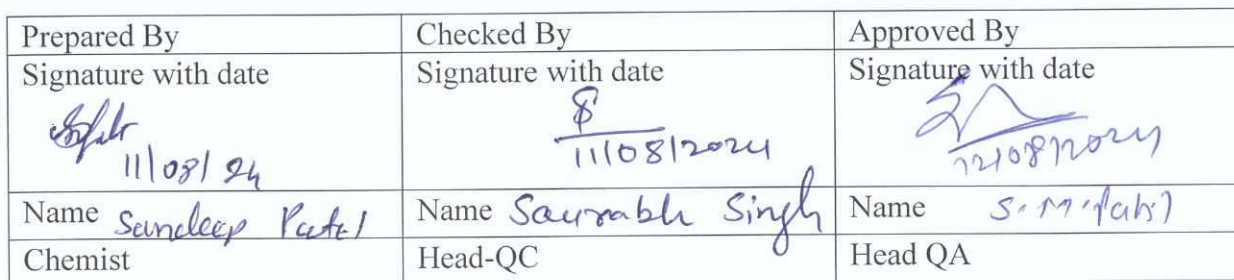 Prepared By Checked By Approved By
Signature with date Signature with date Signature with date
11/08/24 11/08/2024 12/08/2024
Name Sandeep Patel Name Saurabh Singh Name S. M. Patil
Chemist Head-QC Head QA